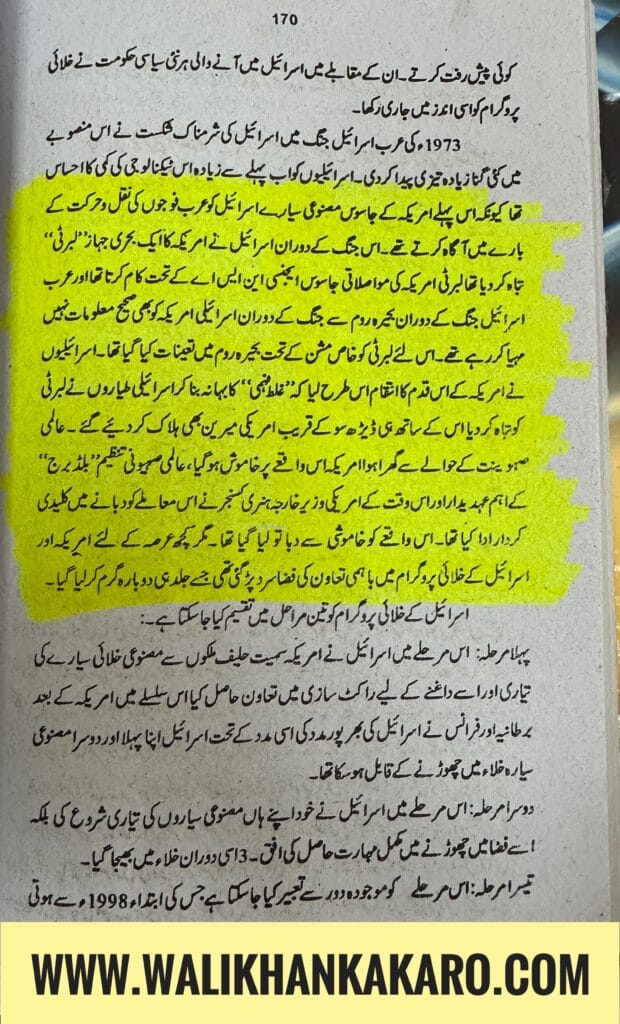 170
کوئی پیش رفت کرتے۔ ان کے مقابلے میں اسرائیل میں آنے والی ہر نئی سیاسی حکومت نے خلائی
پروگرام کو اسی انداز میں جاری رکھا۔
1973ء کی عرب اسرائیل جنگ میں اسرائیل کی شرمناک شکست نے اس منصوبے
میں کئی گنا زیادہ تیزی پیدا کر دی۔ اسرائیلیوں کو اب پہلے سے زیادہ اس ٹیکنالوجی کی کمی کا احساس
تھا کیونکہ اس پہلے امریکہ کے جاسوس مصنوعی سیارے اسرائیل کو عرب فوجوں کی نقل و حرکت کے
بارے میں آگاہ کرتے تھے۔ اس جنگ کے دوران اسرائیل نے امریکہ کا ایک بحری جہاز ”لبرٹی“
تباہ کر دیا تھا لبرٹی امریکہ کی مواصلاتی جاسوس ایجنسی این ایس اے کے تحت کام کرتا تھا اور عرب
اسرائیل جنگ کے دوران بحیرہ روم سے جنگ کے دوران اسرائیلی امریکہ کو بھی صحیح معلومات نہیں
مہیا کر رہے تھے۔ اس لئے لبرٹی کو خاص مشن کے تحت بحیرہ روم میں تعینات کیا گیا تھا۔ اسرائیلیوں
نے امریکہ کے اس قدم کا انتقام اس طرح لیا کہ ”غلط فہمی“ کا بہانہ بنا کر اسرائیلی طیاروں نے لبرٹی
کو تباہ کر دیا اس کے ساتھ ہی ڈیڑھ سو کے قریب امریکی میرین بھی ہلاک کر دیئے گئے۔ عالمی
صہیونیت کے حوالے سے گھرا ہوا امریکہ اس واقعے پر خاموش ہو گیا، عالمی صہیونی تنظیم ”بلڈ برج“
کے اہم عہدیدار اور اس وقت کے امریکی وزیر خارجہ ہنری کسنجر نے اس معاملے کو دبانے میں کلیدی
کردار ادا کیا تھا۔ اس واقعے کو خاموشی سے دبا تو لیا گیا تھا۔ مگر کچھ عرصہ کے لئے امریکہ اور
اسرائیل کے خلائی پروگرام میں باہمی تعاون کی فضا سرد پڑ گئی تھی جسے جلد ہی دوبارہ گرم کر لیا گیا۔
اسرائیل کے خلائی پروگرام کو تین مراحل میں تقسیم کیا جا سکتا ہے۔:
پہلا مرحلہ: اس مرحلے میں اسرائیل نے امریکہ سمیت حلیف ملکوں سے مصنوعی خلائی سیارے کی
تیاری اور اسے داغنے کے لیے راکٹ سازی میں تعاون حاصل کیا اس سلسلے میں امریکہ کے بعد
برطانیہ اور فرانس نے اسرائیل کی بھرپور مدد کی اسی مدد کے تحت اسرائیل اپنا پہلا اور دوسرا مصنوعی
سیارہ خلاء میں چھوڑنے کے قابل ہو سکا تھا۔
دوسرا مرحلہ: اس مرحلے میں اسرائیل نے خود اپنے ہاں مصنوعی سیاروں کی تیاری شروع کی بلکہ
اسے فضا میں چھوڑنے میں مکمل مہارت حاصل کی افق۔3 اسی دوران خلاء میں بھیجا گیا۔
تیسرا مرحلہ: اس مرحلے کو موجودہ دور سے تعبیر کیا جا سکتا ہے جس کی ابتداء 1998ء سے ہوتی
WWW.WALIKHANKAKARO.COM